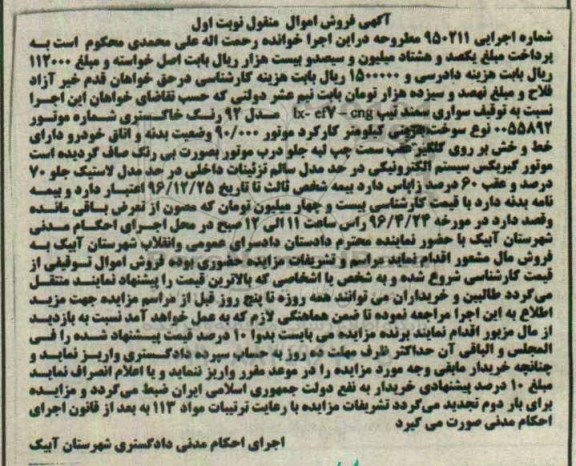 آگهی فروش اموال منقول نوبت اول
شماره اجرایی ۹۵۰۲۱۱ مطروحه دراین اجرا خوانده رحمت اله علی محمدی محکوم است به
پرداخت مبلغ یکصد و هشتاد میلیون و سیصدو بیست هزار ریال بابت اصل خواسته و مبلغ ۱۱۲۰۰۰
ریال بابت هزینه دادرسی و ۱۵۰۰۰۰۰ ریال بابت هزینه کارشناسی درحق خواهان قدم خیر آزاد
فلاح و مبلغ نهصد و سیزده هزار تومان بابت نیم عشر دولتی که حسب تقاضای خواهان این اجرا
نسبت به توقیف سواری سمند تیپ lx- ef7 - cng مدل ۹۲ رنگ خاکستری شماره موتور
۰۰۵۵۸۹۲ نوع سوخت کیلومتر کارکرد موتور ۹۰/۰۰۰ وضعیت بدنه و اتاق خودرو دارای
خط و خش بر روی گلگیر عقب سمت چپ لبه جلو درب موتور بصورت بی رنگ صاف گردیده است
موتور گیربکس سیستم الکترونیکی در حد مدل سالم تزئینات داخلی در حد مدل لاستیک جلو ۷۰
درصد و عقب ۶۰ درصد زاپاس دارد بیمه شخص ثالث تا تاریخ ۹۶/۱۲/۲۵ اعتبار دارد و بیمه
نامه بدنه دارد با قیمت کارشناسی بیست و چهار میلیون تومان که مصون از تعرض باقی مانده
وقصد دارد در مورخه ۹۶/۴/۲۴ راس ساعت ۱۱ الی ۱۲ صبح در محل اجرای احکام مدنی
شهرستان آبیک با حضور نماینده محترم دادستان دادسرای عمومی وانقلاب شهرستان آبیک به
فروش مال مشعور اقدام نماید مراسم و تشریفات مزایده حضوری بوده فروش اموال توقیفی از
قیمت کارشناسی شروع شده و به شخص یا اشخاصی که بالاترین قیمت را پیشنهاد نمایند منتقل
می‌گردد طالبین و خریداران می توانند همه روزه تا پنج روز قبل از مراسم مزایده جهت مزید
اطلاع به این اجرا مراجعه نموده تا ضمن هماهنگی لازم که به عمل خواهد آمد نسبت به بازدید
از مال مزبور اقدام نمایند برنده مزایده می بایست بدوا ۱۰ درصد قیمت پیشنهاد شده را فی
المجلس و الباقی آن حداکثر ظرف مهلت ده روز به حساب سپرده دادگستری واریز نماید و
چنانچه خریدار مابقی وجه مورد مزایده را در موعد مقرر واریز ننماید و یا اعلام انصراف نماید
مبلغ ۱۰ درصد پیشنهادی خریدار به نفع دولت جمهوری اسلامی ایران ضبط می‌گردد و مزایده
برای بار دوم تجدید می‌گردد تشریفات مزایده با رعایت ترتیبات مواد ۱۱۳ به بعد از قانون اجرای
احکام مدنی صورت می گیرد
اجرای احکام مدنی دادگستری شهرستان آبیک